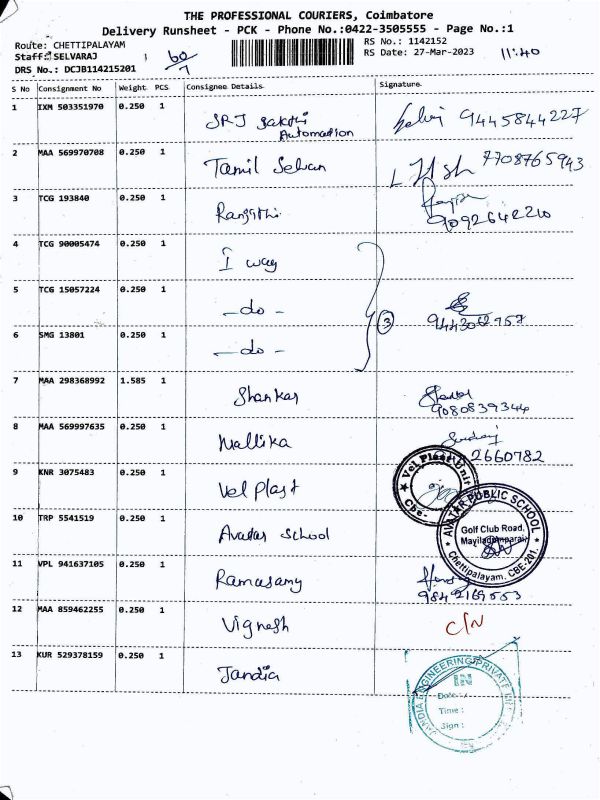 THE PROFESSIONAL COURIERS, Coimbatore
Delivery Runsheet - PCK - Phone No.:0422-3505555 - Page No.:1
Route: CHETTIPALAYAM
RS No.: 1142152
Staff: SELVARAJ
60/7
RS Date: 27-Mar-2023
11:40
DRS No.: DCJB114215201
S No Consignment No Weight PCS Consignee Details Signature
1 IXM 503351970 0.250 1 SRJ Sakthi Automation 9445844227
2 MAA 569970708 0.250 1 Tamil Selvan 7708765943
3 TCG 193840 0.250 1 Ranjithi 9092642210
4 TCG 90005474 0.250 1 I way
5 TCG 15057224 0.250 1 -do- 3
6 SMG 13801 0.250 1 -do-
7 MAA 298368992 1.585 1 Shankar 9080839344
8 MAA 569997635 0.250 1 Mallika 2660782
9 KNR 3075483 0.250 1 Vel Plast
★ Vel Plast Unit
Cbe-
10 TRP 5541519 0.250 1 Avatar School
★ AVATAR PUBLIC SCHOOL ★
Golf Club Road,
Mayiladamparai
Chettipalayam, CBE-201.
11 VPL 941637105 0.250 1 Ramasamy 9842169553
12 MAA 859462255 0.250 1 Vignesh C/N
13 KUR 529378159 0.250 1 Jandia
JANDIA ENGINEERING PRIVATE
IN
Date :
Time :
Sign :